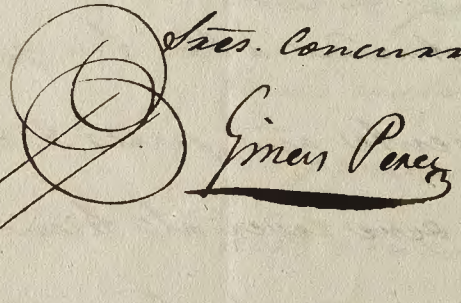 Sres. Concurr
Gines Perez